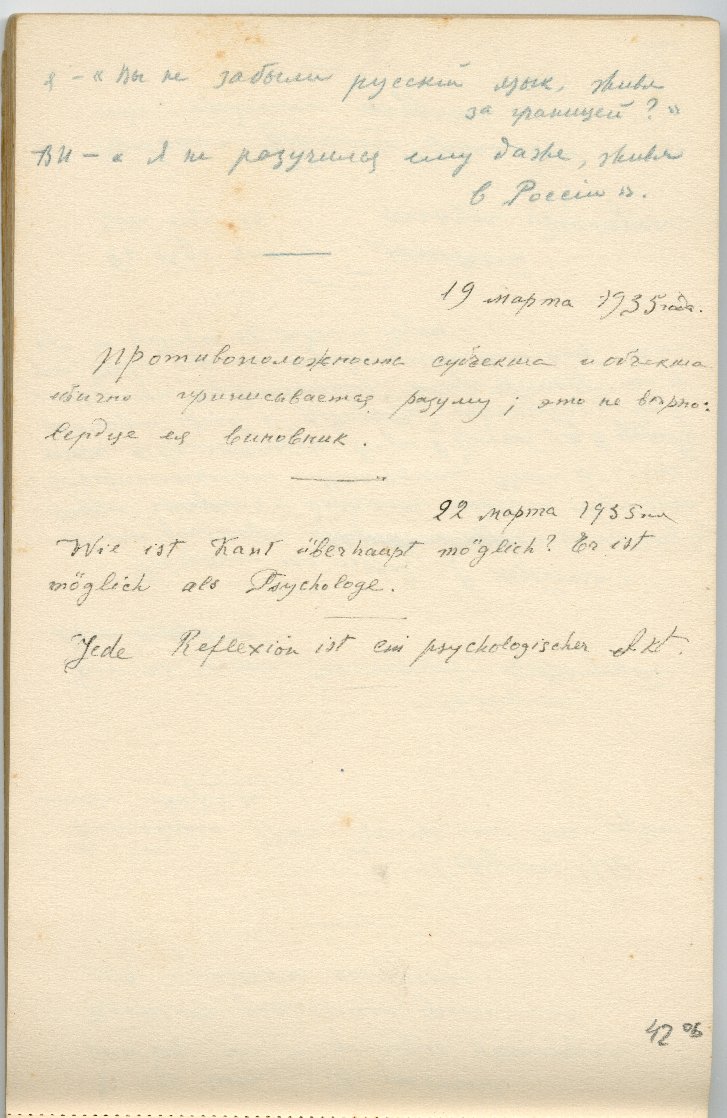 я – « Вы не забыли русскiй язык, живя
за границей? »
ВИ – « Я не разучился ему даже, живя
в Россiи ».
19 марта 1935 года.
Противоположность субъекта и объекта
обычно приписывается разуму; это не вѣрно:
сердце ея виновник.
22 марта 1935
Wie ist Kant überhaupt möglich? Er ist
möglich als Psychologe.
Jede Reflexion ist ein psychologischer Akt.
42 об